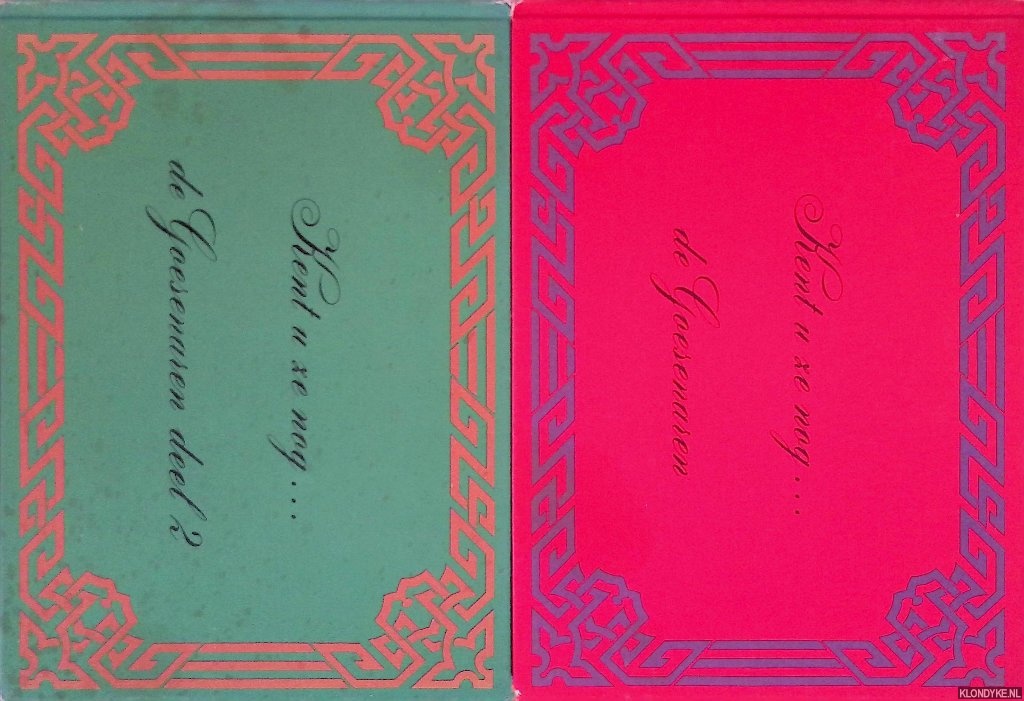 Kent u ze nog...
de Goesenaren deel 2
Kent u ze nog...
de Goesenaren
KLONDYKE.NL